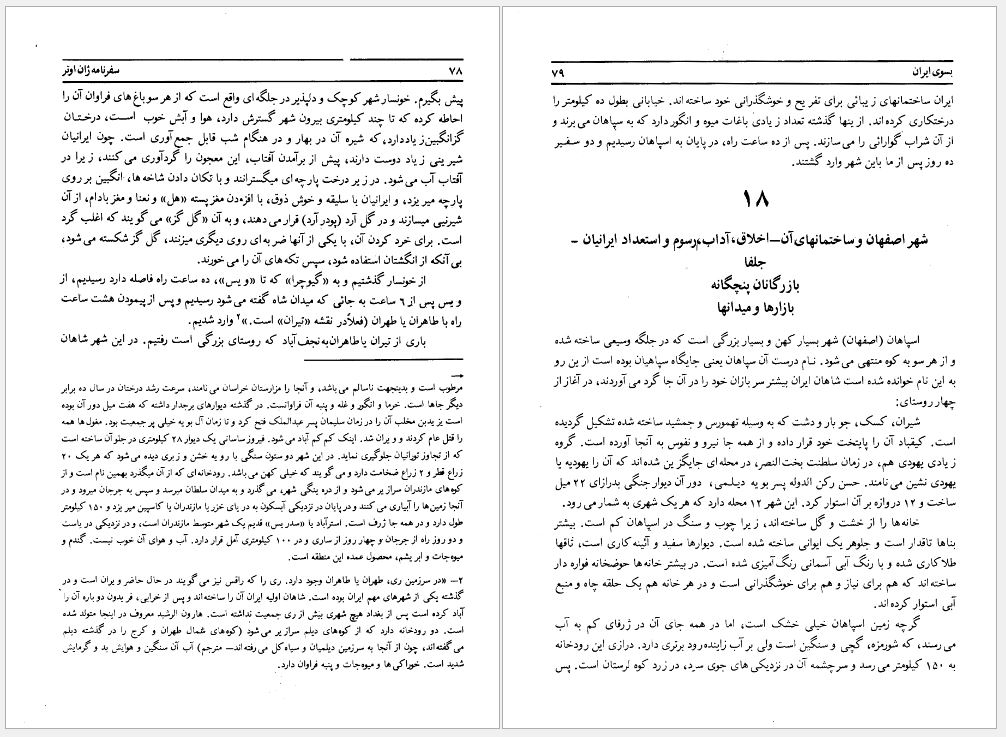 ۷۸
سفرنامه ژان اوتر
پیش بگیرم. خونسار شهر کوچک و دلپذیر در جلگه‌ای واقع است که از هر سو باغ‌های فراوان آن را
احاطه کرده که تا چند کیلومتری بیرون شهر گسترش دارد، هوا و آبش خوب است، درختان
گزانگبین زیاد دارد، که شیره آن در بهار و در هنگام شب قابل جمع‌آوری است. چون ایرانیان
شیرینی زیاد دوست دارند، پیش از برآمدن آفتاب، این معجون را گردآوری می‌کنند، زیرا در
آفتاب آب می‌شود. در زیر درخت پارچه‌ای میگسترانند و با تکان دادن شاخه‌ها، انگبین بر روی
پارچه میریزد، و ایرانیان با سلیقه و خوش ذوق، با افزودن مغز پسته «هل» و نعنا و مغز بادام، از آن
شیرینی میسازند و در گل آرد (پودر آرد) قرار می‌دهند، و به آن «گل گز» می‌گویند که اغلب گرد
است. برای خرد کردن آن، با یکی از آنها ضربه‌ای روی دیگری میزنند، گل گز شکسته می‌شود،
بی‌آنکه از انگشتان استفاده شود، سپس تکه‌های آن را می‌خورند.
از خونسار گذشتیم و به «گیوچرا» که تا «ویس»، ده ساعت راه فاصله دارد رسیدیم، از
ویس پس از ۶ ساعت به جائی که میدان شاه گفته می‌شود رسیدیم و پس از پیمودن هشت ساعت
راه با طاهران یا طهران (فعلاً در نقشه «تیران» است.»۲ وارد شدیم.
باری از تیران یا طاهران به نجف‌آباد که روستای بزرگی است رفتیم. در این شهر شاهان
→
مرطوب است و بدینجهت ناسالم می‌باشد، و آنجا را مزارستان خراسان می‌نامند، سرعت رشد درختان در سال ده برابر
دیگر جاها است. خرما و انگور و غله و پنبه آن فراوانست. در گذشته دیوارهای برجدار داشته که هفت میل دور آن بوده
است یزیدبن مخلب آن را در زمان سلیمان پسر عبدالملک فتح کرد و تا زمان آل بویه خیلی پر جمعیت بود. مغول‌ها همه
را قتل عام کردند و ویران شد. اینک کم کم آباد می‌شود. فیروز ساسانی یک دیوار ۲۸ کیلومتری در جلو آن ساخته است
که از تجاوز تورانیان جلوگیری نماید. در این شهر دو ستون سنگی با رویه خشن و زبری دیده می‌شود که هر یک ۲۰
زراع قطر و ۲ زراع ضخامت دارد و می‌گویند که خیلی کهن می‌باشد. رودخانه‌ای که از آن میگذرد بهمین نام است و از
کوه‌های مازندران سرازیر می‌شود و از دره ینگی شهر، می‌گذرد و به میدان سلطان میرسد و سپس به جرجان میرود و در
آنجا زمین‌ها را آبیاری می‌کنند و در پایان در نزدیکی آبسکون به دریای خزر یا مازندران یا کاسپین میریزد و ۱۵۰ کیلومتر
طول دارد و در همه جا ژرف است. استرآباد یا «سدریس» قدیم یک شهر متوسط مازندران است، و در نزدیکی دریاست
و دو روز راه از جرجان و چهار روز از ساری و در ۱۰۰ کیلومتری آمل قرار دارد. آب و هوای آن خوب نیست. گندم و
میوه‌جات و ابریشم، محصول عمده این منطقه است.
۲ـ «در سرزمین ری، طهران یا طاهران وجود دارد. ری را که رافس نیز می‌گویند در حال حاضر ویران است و در
گذشته یکی از شهرهای مهم ایران بوده است. شاهان اولیه ایران آن را ساخته‌اند و پس از خرابی، فریدون دوباره آن را
آباد کرده است پس از بغداد هیچ شهری بیش از ری جمعیت نداشته است. هارون الرشید معروف در اینجا متولد شده
است. دو رودخانه دارد که از کوه‌های دیلم سرازیر می‌شود (کوه‌های شمال طهران و کرج را در گذشته دیلم
می‌گفته‌اند، چون از آنجا به سرزمین دیلمیان و سیاه کل می‌رفته‌اند— مترجم) آب آن سنگین و هوایش بد و گرمایش
شدید است. خوراکی‌ها و میوجات و پنبه فراوان دارد.
بسوی ایران
۷۹
ایران ساختمانهای زیبائی برای تفریح و خوشگذرانی خود ساخته‌اند. خیابانی بطول ده کیلومتر را
درختکاری کرده‌اند. از ینها گذشته تعداد زیادی باغات میوه و انگور دارد که به سپاهان می‌برند و
از آن شراب گوارائی را می‌سازند. پس از ده ساعت راه، در پایان به اسپاهان رسیدیم و دو سفیر
ده روز پس از ما باین شهر وارد گشتند.
۱۸
شهر اصفهان و ساختمانهای آن—اخلاق، آداب، رسوم و استعداد ایرانیان -
جلفا
بازرگانان پنچگانه
بازارها و میدانها
اسپاهان (اصفهان) شهر بسیار کهن و بسیار بزرگی است که در جلگه وسیعی ساخته شده
و از هر سو به کوه منتهی می‌شود. نام درست آن سپاهان یعنی جایگاه سپاهیان بوده است از ین رو
به این نام خوانده شده است شاهان ایران بیشتر سربازان خود را در آن جا گرد می‌آوردند، در آغاز از
چهار روستای:
شیران، کسک، جوبار و دشت که به وسیله تهمورس و جمشید ساخته شده تشکیل گردیده
است. کیقباد آن را پایتخت خود قرار داده و از همه جا نیرو و نفوس به آنجا آورده است. گروه
زیادی یهودی هم، در زمان سلطنت بخت‌النصر، در محله‌ای جایگزین شده‌اند که آن را یهودیه یا
یهودی نشین می‌نامند. حسن رکن الدوله پسر بویه دیلمی، دور آن دیوار جنگی بدرازای ۲۲ میل
ساخت و ۱۲ دروازه بر آن استوار کرد. این شهر ۱۲ محله دارد که هر یک شهری به شمار می‌رود.
خانه‌ها را از خشت و گل ساخته‌اند، زیرا چوب و سنگ در اسپاهان کم است. بیشتر
بناها تاقدار است و جلوهر یک ایوانی ساخته شده است. دیوارها سفید و آئینه کاری است، تاقها
طلاکاری شده و با رنگ آبی آسمانی رنگ‌آمیزی شده است. در بیشتر خانه‌ها حوضخانه فواره دار
ساخته‌اند که هم برای نیاز و هم برای خوشگذرانی است و در هر خانه هم یک حلقه چاه و منبع
آبی استوار کرده‌اند.
گرچه زمین اسپاهان خیلی خشک است، اما در همه جای آن در ژرفای کم به آب
می‌رسند، که شورمزه، گچی و سنگین است ولی بر آب زاینده‌رود برتری دارد. درازی این رودخانه
به ۱۵۰ کیلومتر می‌رسد و سرچشمه آن در نزدیکی های جوی سرد، در زرد کوه لرستان است. پس